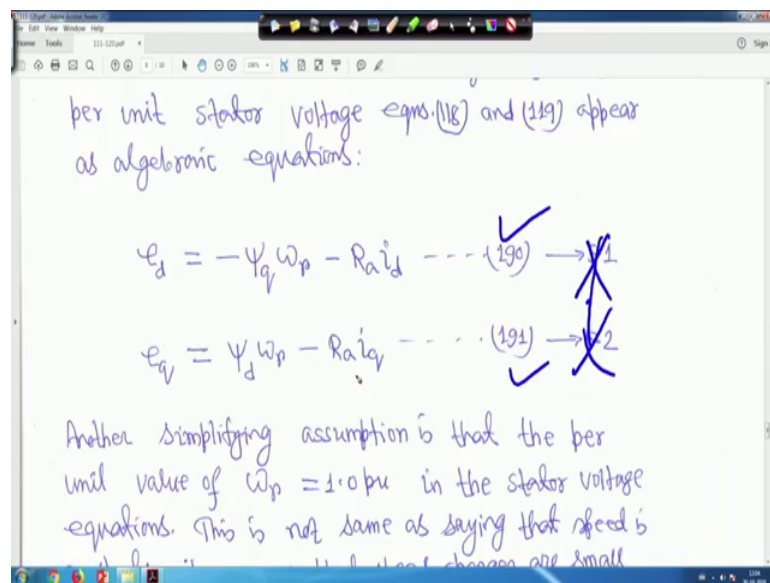 111-120.pdf - Adobe Acrobat Reader DC
File Edit View Window Help
Home Tools 111-120.pdf × Sign
per unit stator voltage eqns.(118) and (119) appear
as algebraic equations:
e_d = -Ψ_q ω_r - R_a i_d ---- (190) → 1
e_q = Ψ_d ω_r - R_a i_q ---- (191) → 2
Another simplifying assumption is that the per
unit value of ω_r = 1.0 pu in the stator voltage
equations. This is not same as saying that speed is
changes are small